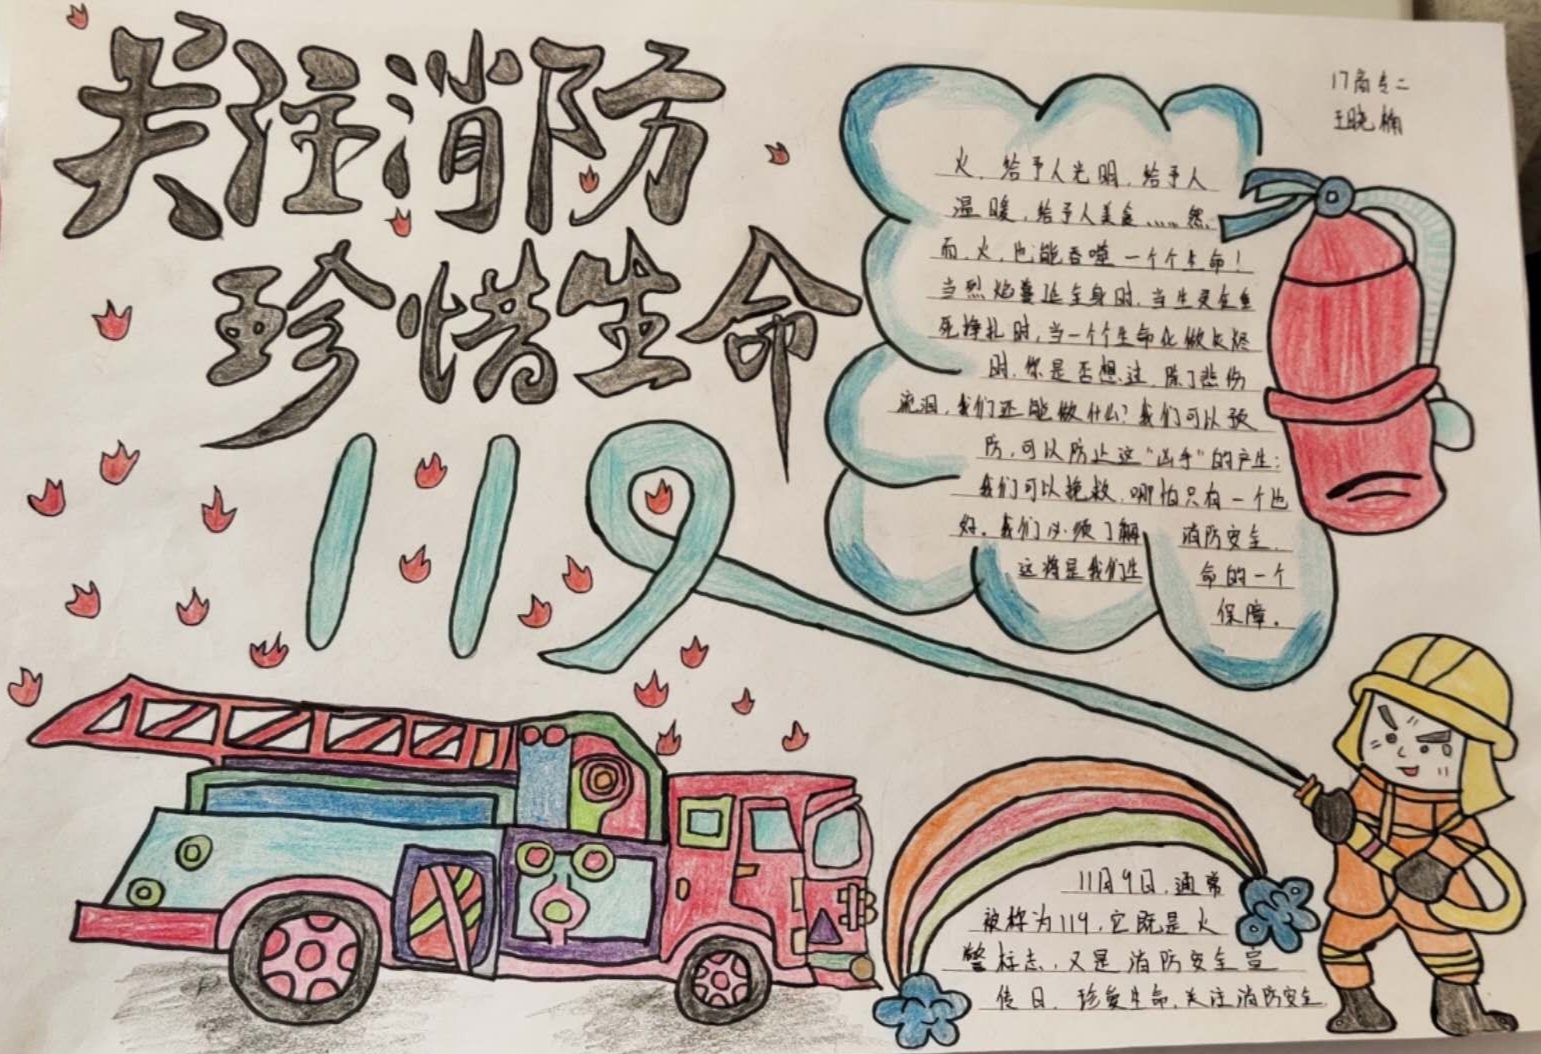 关注消防
珍惜生命
119
17商务二
王晓楠
火，给予人光明，给予人
温暖，给予人美食……然
而，火，也能吞噬一个个生命！
当烈焰蔓延全身时，当生灵在垂
死挣扎时，当一个个生命化做灰烬
时，你是否想过，除了悲伤
流泪，我们还能做什么？我们可以预
防，可以防止这“凶手”的产生；
我们可以挽救，哪怕只有一个也
好。我们必须了解 消防安全，
这将是我们生 命的一个
保障。
11月9日，通常
被称为119，它既是火
警标志，又是消防安全宣
传日，珍爱生命，关注消防安全